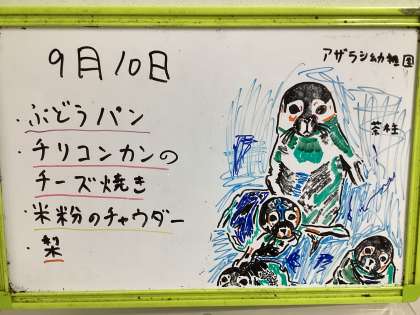 9月10日
・ぶどうパン
・チリコンカンの
チーズ焼き
・米粉のチャウダー
・梨
アザラシ幼稚園
茶柱